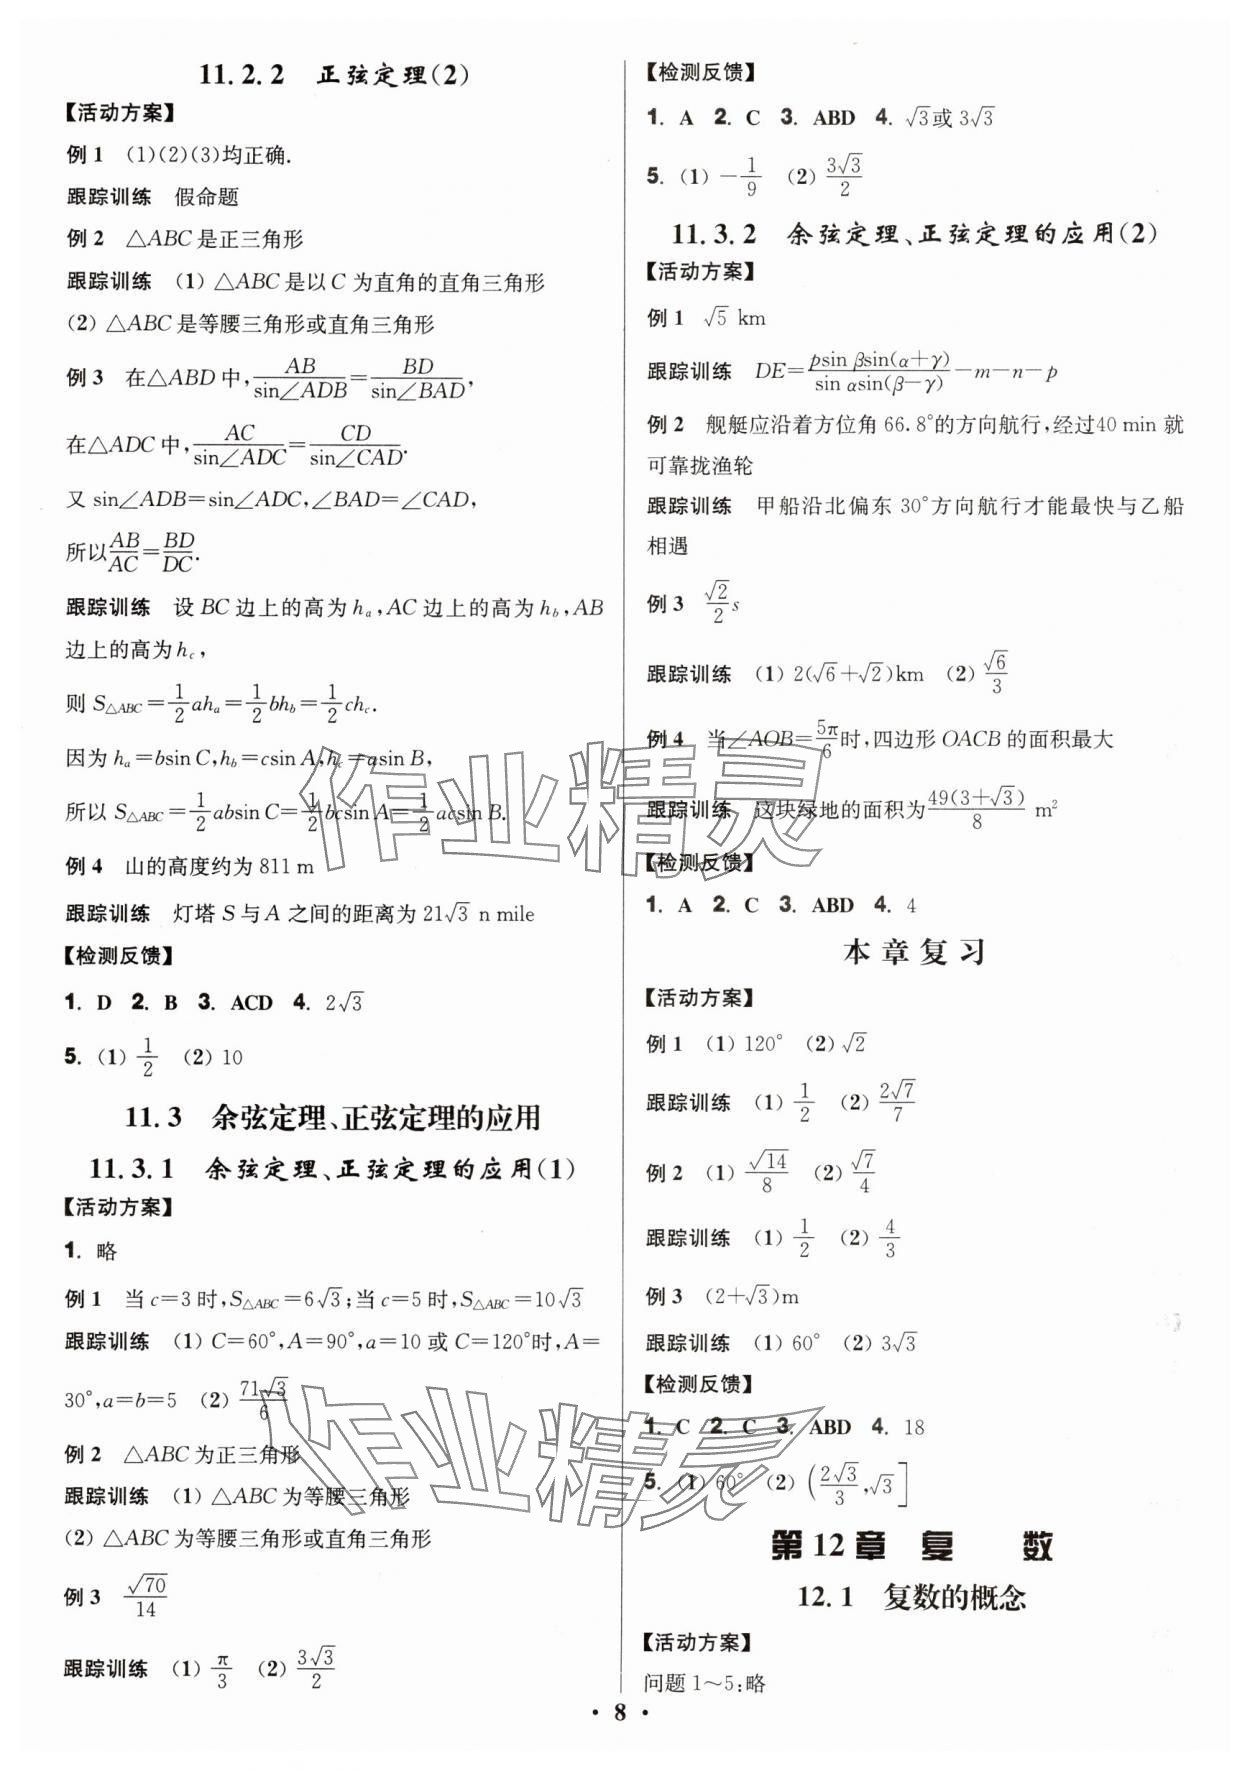 11.2.2 正弦定理(2)
【活动方案】
例1 (1)(2)(3)均正确.
跟踪训练 假命题
例2 △ABC是正三角形
跟踪训练 (1) △ABC是以C为直角的直角三角形
(2) △ABC是等腰三角形或直角三角形
例3 在△ABD中,AB/sin∠ADB=BD/sin∠BAD,
在△ADC中,AC/sin∠ADC=CD/sin∠CAD.
又 sin∠ADB=sin∠ADC,∠BAD=∠CAD,
所以AB/AC=BD/DC.
跟踪训练 设BC边上的高为hₐ,AC边上的高为h_b,AB
边上的高为h_c,
则S△ABC=1/2ahₐ=1/2bh_b=1/2ch_c.
因为hₐ=bsin C,h_b=csin A,h_c=asin B,
所以S△ABC=1/2absin C=1/2bcsin A=1/2acsin B.
例4 山的高度约为811 m
跟踪训练 灯塔S与A之间的距离为21√3 n mile
【检测反馈】
1. D 2. B 3. ACD 4. 2√3
5. (1) 1/2 (2) 10
11.3 余弦定理、正弦定理的应用
11.3.1 余弦定理、正弦定理的应用(1)
【活动方案】
1. 略
例1 当c=3时,S△ABC=6√3;当c=5时,S△ABC=10√3
跟踪训练 (1) C=60°,A=90°,a=10或C=120°时,A=
30°,a=b=5 (2) 71√3/6
例2 △ABC为正三角形
跟踪训练 (1) △ABC为等腰三角形
(2) △ABC为等腰三角形或直角三角形
例3 √70/14
跟踪训练 (1) π/3 (2) 3√3/2
【检测反馈】
1. A 2. C 3. ABD 4. √3或3√3
5. (1) −1/9 (2) 3√3/2
11.3.2 余弦定理、正弦定理的应用(2)
【活动方案】
例1 √5 km
跟踪训练 DE=psin βsin(α+γ)/sin αsin(β−γ)−m−n−p
例2 舰艇应沿着方位角66.8°的方向航行,经过40 min就
可靠拢渔轮
跟踪训练 甲船沿北偏东30°方向航行才能最快与乙船
相遇
例3 √2/2 s
跟踪训练 (1) 2(√6+√2)km (2) √6/3
例4 当∠AOB=5π/6时,四边形OACB的面积最大
跟踪训练 这块绿地的面积为49(3+√3)/8 m²
【检测反馈】
1. A 2. C 3. ABD 4. 4
本章复习
【活动方案】
例1 (1) 120° (2) √2
跟踪训练 (1) 1/2 (2) 2√7/7
例2 (1) √14/8 (2) √7/4
跟踪训练 (1) 1/2 (2) 4/3
例3 (2+√3)m
跟踪训练 (1) 60° (2) 3√3
【检测反馈】
1. C 2. C 3. ABD 4. 18
5. (1) 60° (2) (2√3/3,√3]
第12章 复 数
12.1 复数的概念
【活动方案】
问题1～5:略
·8·
作业精灵
作业精灵